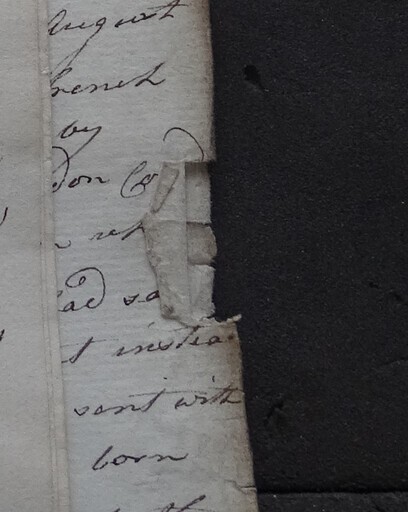 August
french
by
don Co
n rep
ead sa
t instea
sent with
born